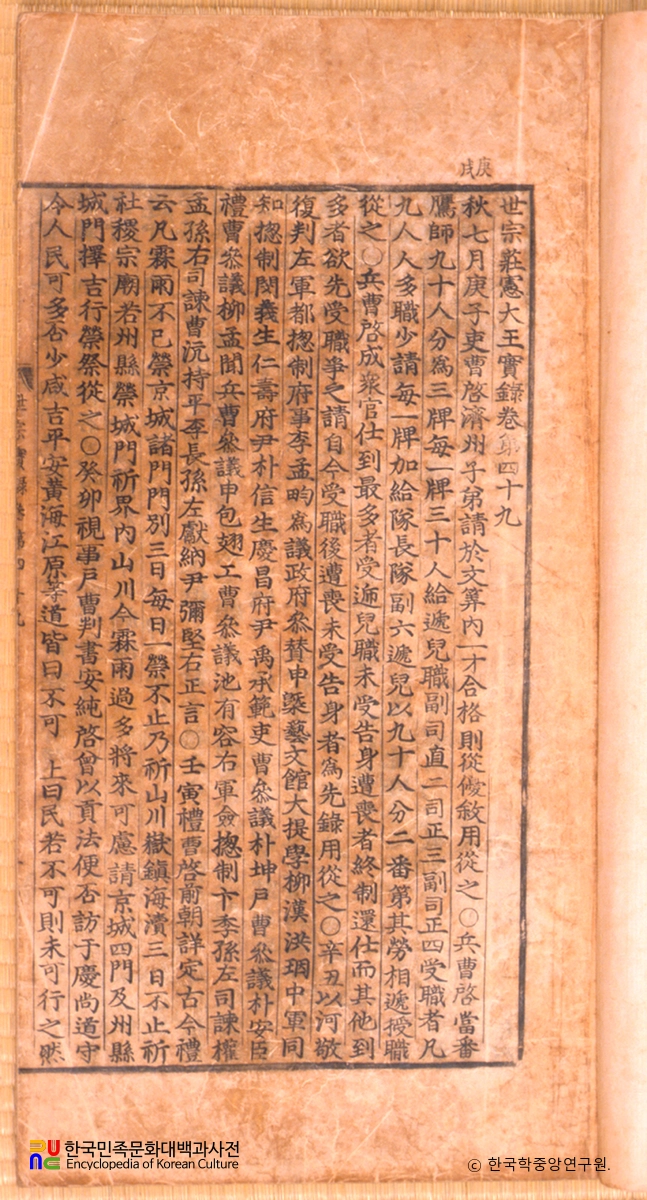 庚戌
世宗莊憲大王實錄卷第四十九
秋七月庚子吏曹啓濟州子弟請於文筭內一才合格則從優敍用從之○兵曹啓當番
鷹師九十人分爲三牌每一牌三十人給遞兒職副司直二司正三副司正四受職者凡
九人人多職少請每一牌加給隊長隊副六遞兒以九十人分二番第其勞相遞授職
從之○兵曹啓成衆官仕到最多者受遞兒職未受告身遭喪者終制還仕而其他到
多者欲先受職爭之請自今受職後遭喪未受告身者爲先錄用從之○辛丑以河敬
復判左軍都摠制府事李孟畇爲議政府叅贊申槩藝文館大提學柳漢洪珚中軍同
知摠制閔義生仁壽府尹朴信生慶昌府尹禹承範吏曹叅議朴坤戶曹叅議朴安臣
禮曹叅議柳孟聞兵曹叅議申包翅工曹叅議池有容右軍僉摠制卞季孫左司諫權
孟孫右司諫曹沆持平李長孫左獻納尹彌堅右正言○壬寅禮曹啓前朝詳定古今禮
云凡霖雨不已禜京城諸門門別三日每日一禜不止乃祈山川嶽鎭海瀆三日不止祈
社稷宗廟若州縣禜城門祈界內山川今霖雨過多將來可慮請京城四門及州縣
城門擇吉行禜祭從之○癸卯視事戶曹判書安純啓曾以貢法便否訪于慶尙道守
令人民可多否少咸吉平安黃海江原等道皆曰不可 上曰民若不可則未可行之然
世宗實錄卷第四十九
한국민족문화대백과사전
Encyclopedia of Korean Culture
© 한국학중앙연구원.